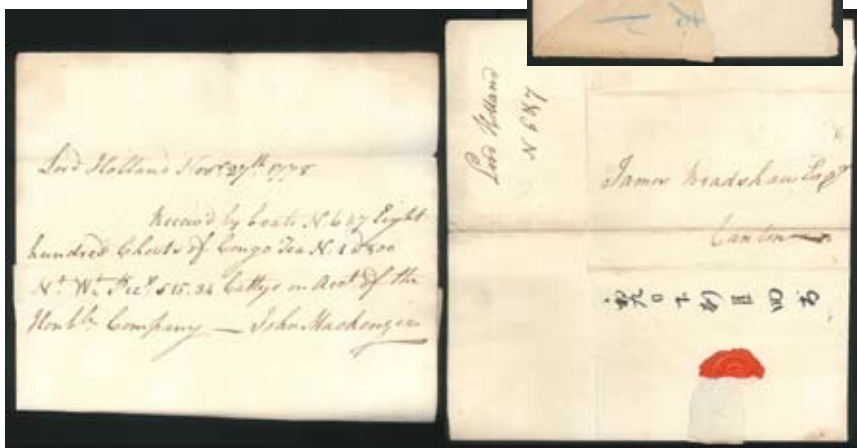 Lord Holland Novr 27th 1778
Receiv'd by boats N. 6 & 7 Eight
hundred Chests of Congo Tea N. 1 @ 800
Nt Wt 515.34 Cattys on Acct of the
Honble Company — John Mackenzie
Lord Holland
N 6 & 7
James Bradshaw Esqr
Canton